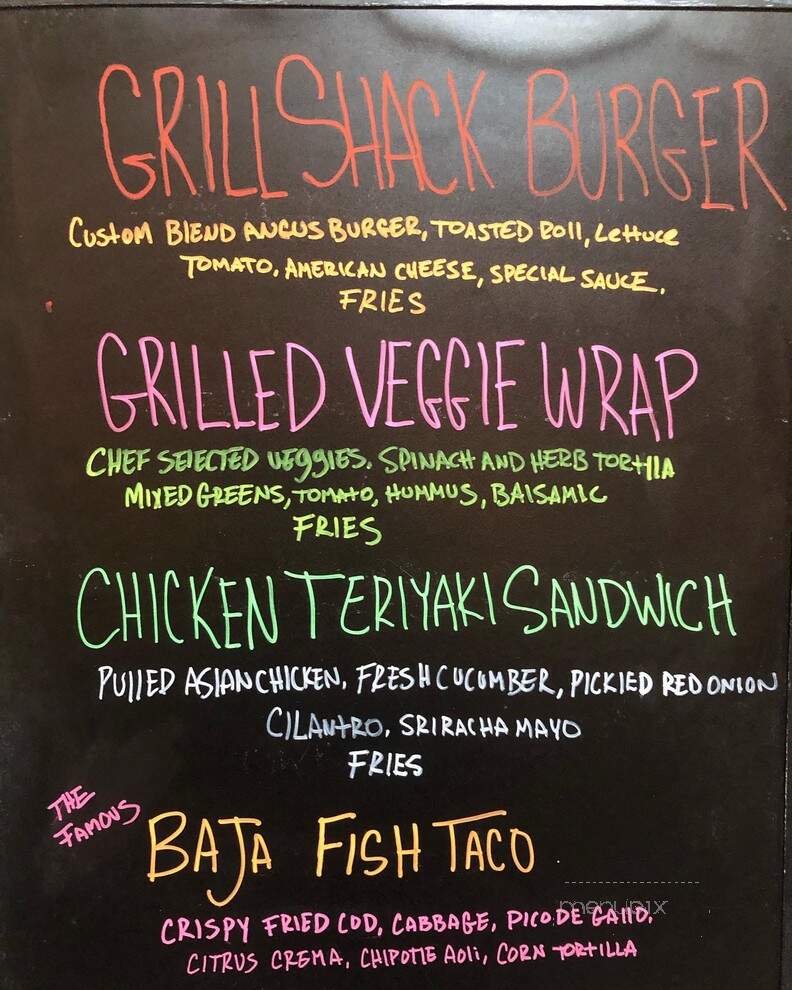 GRILL SHACK BURGER
CUSTOM BLEND ANGUS BURGER, TOASTED ROll, LETTUCE
TOMATO, AMERICAN CHEESE, SPECIAL SAUCE.
FRIES
GRILLED VEGGIE WRAP
CHEF SElECTED VEGGIES. SPINACH AND HERB TORTIllA
MIXED GREENS, TOMATO, HUMMUS, BAlSAMIC
FRIES
CHICKEN TERIYAKI SANDWICH
PUllED ASIAN CHICKEN. FRESH CUCUMBER, PICKlED RED ONION
CILANTRO, SRIRACHA MAYO
FRIES
THE
FAMOUS
BAJA FISH TACO
menupix
CRISPY FRIED COD, CABBAGE, PICO DE GAllO,
CITRUS CREMA, CHIPOTlE AOli, CORN TORTILLA